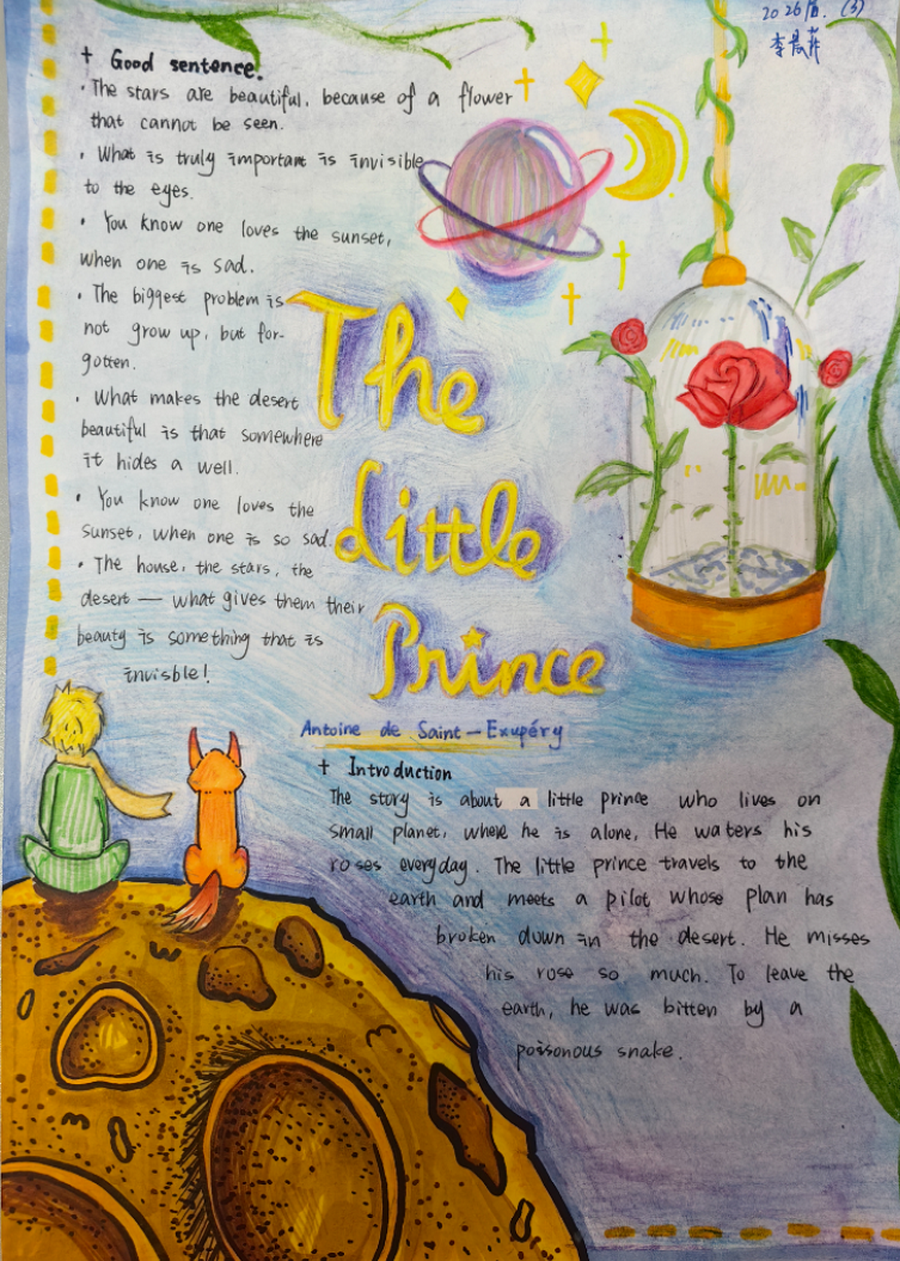 2026届. (3)
李晨菲
+ Good sentence.
· The stars are beautiful, because of a flower
that cannot be seen.
· What is truly important is invisible
to the eyes.
· You know one loves the sunset,
when one is sad.
· The biggest problem is
not grow up, but for-
gotten.
· What makes the desert
beautiful is that somewhere
it hides a well.
· You know one loves the
sunset, when one is so sad.
· The house, the stars, the
desert — what gives them their
beauty is something that is
invisble!
The
Little
Prince
Antoine de Saint-Exupéry
+ Introduction
The story is about a little prince who lives on
small planet, where he is alone, He waters his
roses everyday. The little prince travels to the
earth and meets a pilot whose plan has
broken down in the desert. He misses
his rose so much. To leave the
earth, he was bitten by a
poisonous snake.